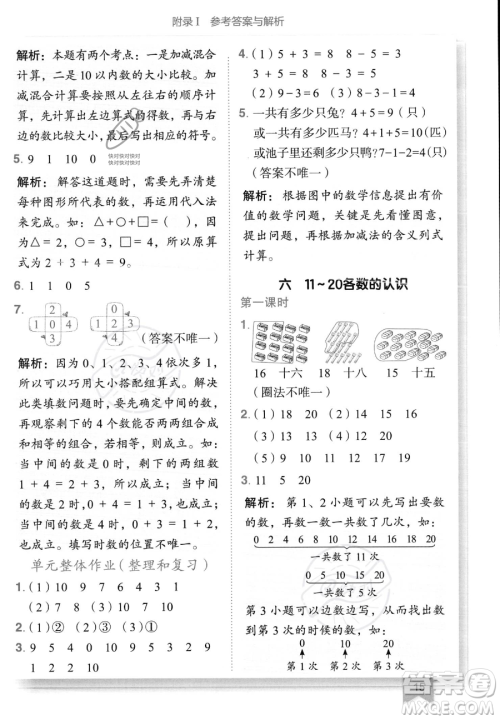 附录Ⅰ 参考答案与解析
解析：本题有两个考点：一是加减混合计算，二是 10 以内数的大小比较。加减混合计算要按照从左往右的顺序，先计算出左边算式的得数，再与右边的数比较大小，最后写出相应的符号。
5. 9 1 10 0
快对快对快对 快对快对快对
解析：解答这道题时，需要先弄清楚每种图形所代表的数，再运用代入法来完成。如：△＋○＋□＝△，因为△＝2，○＝0，□＝0，所以原算式为 2＋0＋0＝2。
6. 1 1 0 5
7.
4
1 0 4
1
0
2 3 2
4
（答案不唯一）
解析：因为 0、1、2、3、4 各不相同，所以可以巧用大小搭配组算式。解决此类填数问题时，可以先确定中间的数，再观察剩下的 4 个数能否两两组成得数相同的加法算式。
当中间的数是 0 时，1＋4＝2＋3；
当中间的数是 2 时，0＋4＝1＋3；
当中间的数是 4 时，0＋3＝1＋2。
注意：填数时数的位置不唯一。
单元整体作业（整理和复习）
1.（1）10 9 7 9 4 6
（2）10 8 7 1 3
2.（1）① （2）② （3）② （4）①
3. 9 5 8 3 9 9
1 2 2 10
4.（1）5 ＋ 3 ＝ 8 3 ＋ 5 ＝ 8
8 － 3 ＝ 5 8 － 5 ＝ 3
（2）9 3 6
5. 一共有多少只兔？4＋5＝9（只）
或一共有多少匹马？4＋4＝8（匹）
或池子里还剩几只鸭？7－1－2＝4（只）
（答案不唯一）
解析：根据图中的数学信息提出有价值的数学问题，关键是先看懂图意，明确数量关系，再根据加减法的含义列式计算。
六 11～20各数的认识
第一课时
1.
16 十六 18 十八 15 十五
（圈法不唯一）
2.（1）18 20 （2）15 12
（3）20 10 （4）10 20
3. 11 13 17
解析：第 1、2 小题可以先写出要数的数，再看一共数了几次，如：
0 2 4 6 8 10 12 14 16 18 20
一共数了 11 次
0 5 10 15 20
一共数了 5 次
第 3 小题可以边数边写，从而找到第 3 次的时候的数，如：
0 10 20
第 1 次 第 2 次 第 3 次